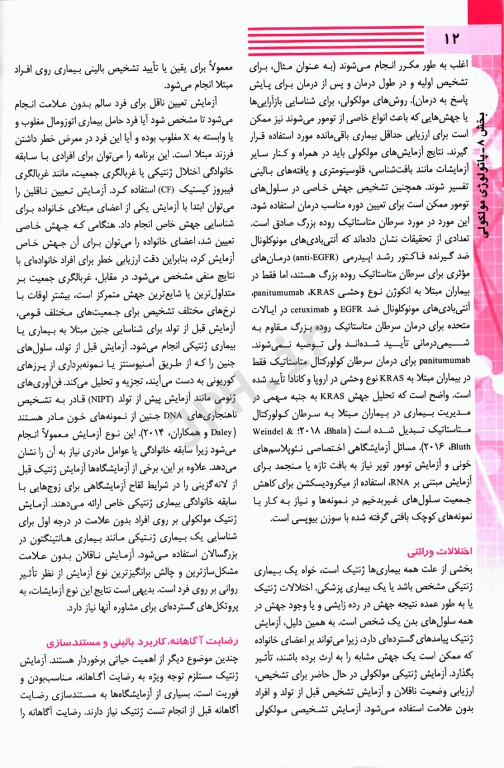 ۱۲
بخش ۸ - پاتولوژی مولکولی
اغلب به طور مکرر انجام می‌شوند (به عنوان مثال، برای
تشخیص اولیه و در طول درمان و پس از درمان برای پایش
پاسخ به درمان). روش‌های مولکولی، برای شناسایی بازآرایی‌ها
یا جهش‌هایی که باعث انواع خاصی از تومور می‌شوند نیز ممکن
است برای ارزیابی حداقل بیماری باقی‌مانده مورد استفاده قرار
گیرند. نتایج آزمایش‌های مولکولی باید در همراه و کنار سایر
آزمایشات مانند بافت‌شناسی، فلوسیتومتری و یافته‌های بالینی
تفسیر شوند. همچنین تشخیص جهش خاصی در سلول‌های
تومور ممکن است برای تعیین دوره مناسب درمان استفاده شود.
این مورد در مورد سرطان متاستاتیک روده بزرگ صادق است.
تعدادی از تحقیقات نشان داده‌اند که آنتی‌بادی‌های مونوکلونال
ضد گیرنده فاکتور رشد اپیدرمی (anti-EGFR) درمان‌های
مؤثری برای سرطان متاستاتیک روده بزرگ هستند، اما فقط در
بیماران مبتلا به انکوژن نوع وحشی KRAS، panitumumab،
آنتی‌بادی‌های مونوکلونال ضد EGFR و cetuximab در ایالات
متحده برای درمان سرطان متاستاتیک روده بزرگ مقاوم به
شیمی‌درمانی تأیید شده‌اند ولی توصیه نمی‌شوند.
panitumumab برای درمان سرطان کولورکتال متاستاتیک فقط
در بیماران مبتلا به KRAS نوع وحشی در اروپا و کانادا تأیید شده
است. واضح است که تحلیل جهش KRAS به جنبه مهمی در
مدیریت بیماری در بیماران مبتلا به سرطان کولورکتال
متاستاتیک تبدیل شده است (Bhala، ۲۰۱۸؛ Weindel &
Bluth، ۲۰۱۶). مسائل آزمایشگاهی اختصاصی نئوپلاسم‌های
خونی و آزمایش تومور توپر نیاز به بافت تازه یا منجمد برای
آزمایش مبتنی بر RNA، استفاده از میکرودیسکشن برای کاهش
جمعیت سلول‌های غیربدخیم در نمونه‌ها و نیاز به کار با
نمونه‌های کوچک بافتی گرفته شده با سوزن بیوپسی است.
اختلالات وراثتی
بخشی از علت همه بیماری‌ها ژنتیک است، خواه یک بیماری
ژنتیکی مشخص باشد یا یک بیماری پزشکی. اختلالات ژنتیک
یا به طور عمده نتیجه جهش در رده زایشی و یا وجود جهش در
همه سلول‌های بدن یک شخص است. به همین دلیل، آزمایش
ژنتیک پیامدهای گسترده‌ای دارد، زیرا می‌تواند بر اعضای خانواده
که ممکن است یک جهش مشابه را به ارث برده باشند، تأثیر
بگذارد. آزمایش ژنتیکی مولکولی در حال حاضر برای تشخیص،
ارزیابی وضعیت ناقلان و آزمایش تشخیص قبل از تولد و افراد
بدون علامت استفاده می‌شود. آزمایش تشخیصی مولکولی
معمولاً برای یقین یا تأیید تشخیص بالینی بیماری روی افراد
مبتلا انجام می‌شود.
آزمایش تعیین ناقل برای فرد سالم بدون علامت انجام
می‌شود تا مشخص شود آیا فرد حامل بیماری اتوزومال مغلوب و
یا وابسته به X مغلوب بوده و آیا این فرد در معرض خطر داشتن
فرزند مبتلا است. این برنامه را می‌توان برای افرادی با سابقه
خانوادگی اختلال ژنتیکی یا غربالگری جمعیت، مانند غربالگری
فیبروز کیستیک (CF) استفاده کرد. آزمایش تعیین ناقلین را
می‌توان ابتدا با آزمایش یکی از اعضای مبتلای خانواده برای
شناسایی جهش خاص انجام داد. هنگامی که جهش خاصی
تعیین شد، اعضای خانواده را می‌توان برای آن جهش خاص
آزمایش کرد، بنابراین دقت ارزیابی خطر برای افراد خانواده‌ای با
نتایج منفی مشخص می‌شود. در مقابل، غربالگری جمعیت بر
متداول‌ترین یا شایع‌ترین جهش متمرکز است، بیشتر اوقات با
نرخ‌های مختلف تشخیص برای جمعیت‌های مختلف قومی،
آزمایش قبل از تولد برای شناسایی جنین مبتلا به بیماری یا
بیماری ژنتیکی انجام می‌شود. آزمایش قبل از تولد، سلول‌های
جنین را که از طریق آمنیوسنتز یا نمونه‌برداری از پرزهای
کوریونی به دست می‌آیند، تجزیه و تحلیل می‌کند. فن‌آوری‌های
نوین مانند آزمایش پیش از تولد (NIPT) قادر به تشخیص
ناهنجاری‌های DNA جنین از نمونه‌های خون مادر هستند
(Daley و همکاران، ۲۰۱۴). این نوع آزمایش معمولاً انجام
می‌شود زیرا سابقه خانوادگی یا عوامل مادری نیاز به آن را نشان
می‌دهد. علاوه بر این، برخی از آزمایشگاه‌ها آزمایش ژنتیک قبل
از لانه‌گزینی را در شرایط لقاح آزمایشگاهی برای زوج‌هایی با
سابقه خانوادگی بیماری ژنتیکی خاص ارائه می‌دهند. آزمایش
ژنتیک مولکولی بر روی افراد بدون علامت در درجه اول برای
شناسایی یک بیماری ژنتیکی مانند بیماری هانتینگتون در
بزرگسالان استفاده می‌شود. آزمایش ناقلان بدون علامت
مشکل‌سازترین و چالش برانگیزترین نوع آزمایش از نظر تأثیر
روانی بر روی فرد است. بدیهی است نتایج این نوع آزمایشات، به
پروتکل‌های گسترده‌ای برای مشاوره آنها نیاز دارد.
رضایت آگاهانه، کاربرد بالینی و مستندسازی
چندین موضوع دیگر از اهمیت حیاتی برخوردار هستند. آزمایش
ژنتیک مستلزم توجه ویژه به رضایت آگاهانه، مناسب‌بودن و
فوریت است. بسیاری از آزمایشگاه‌ها به مستندسازی رضایت
آگاهانه قبل از انجام تست ژنتیک نیاز دارند. رضایت آگاهانه را